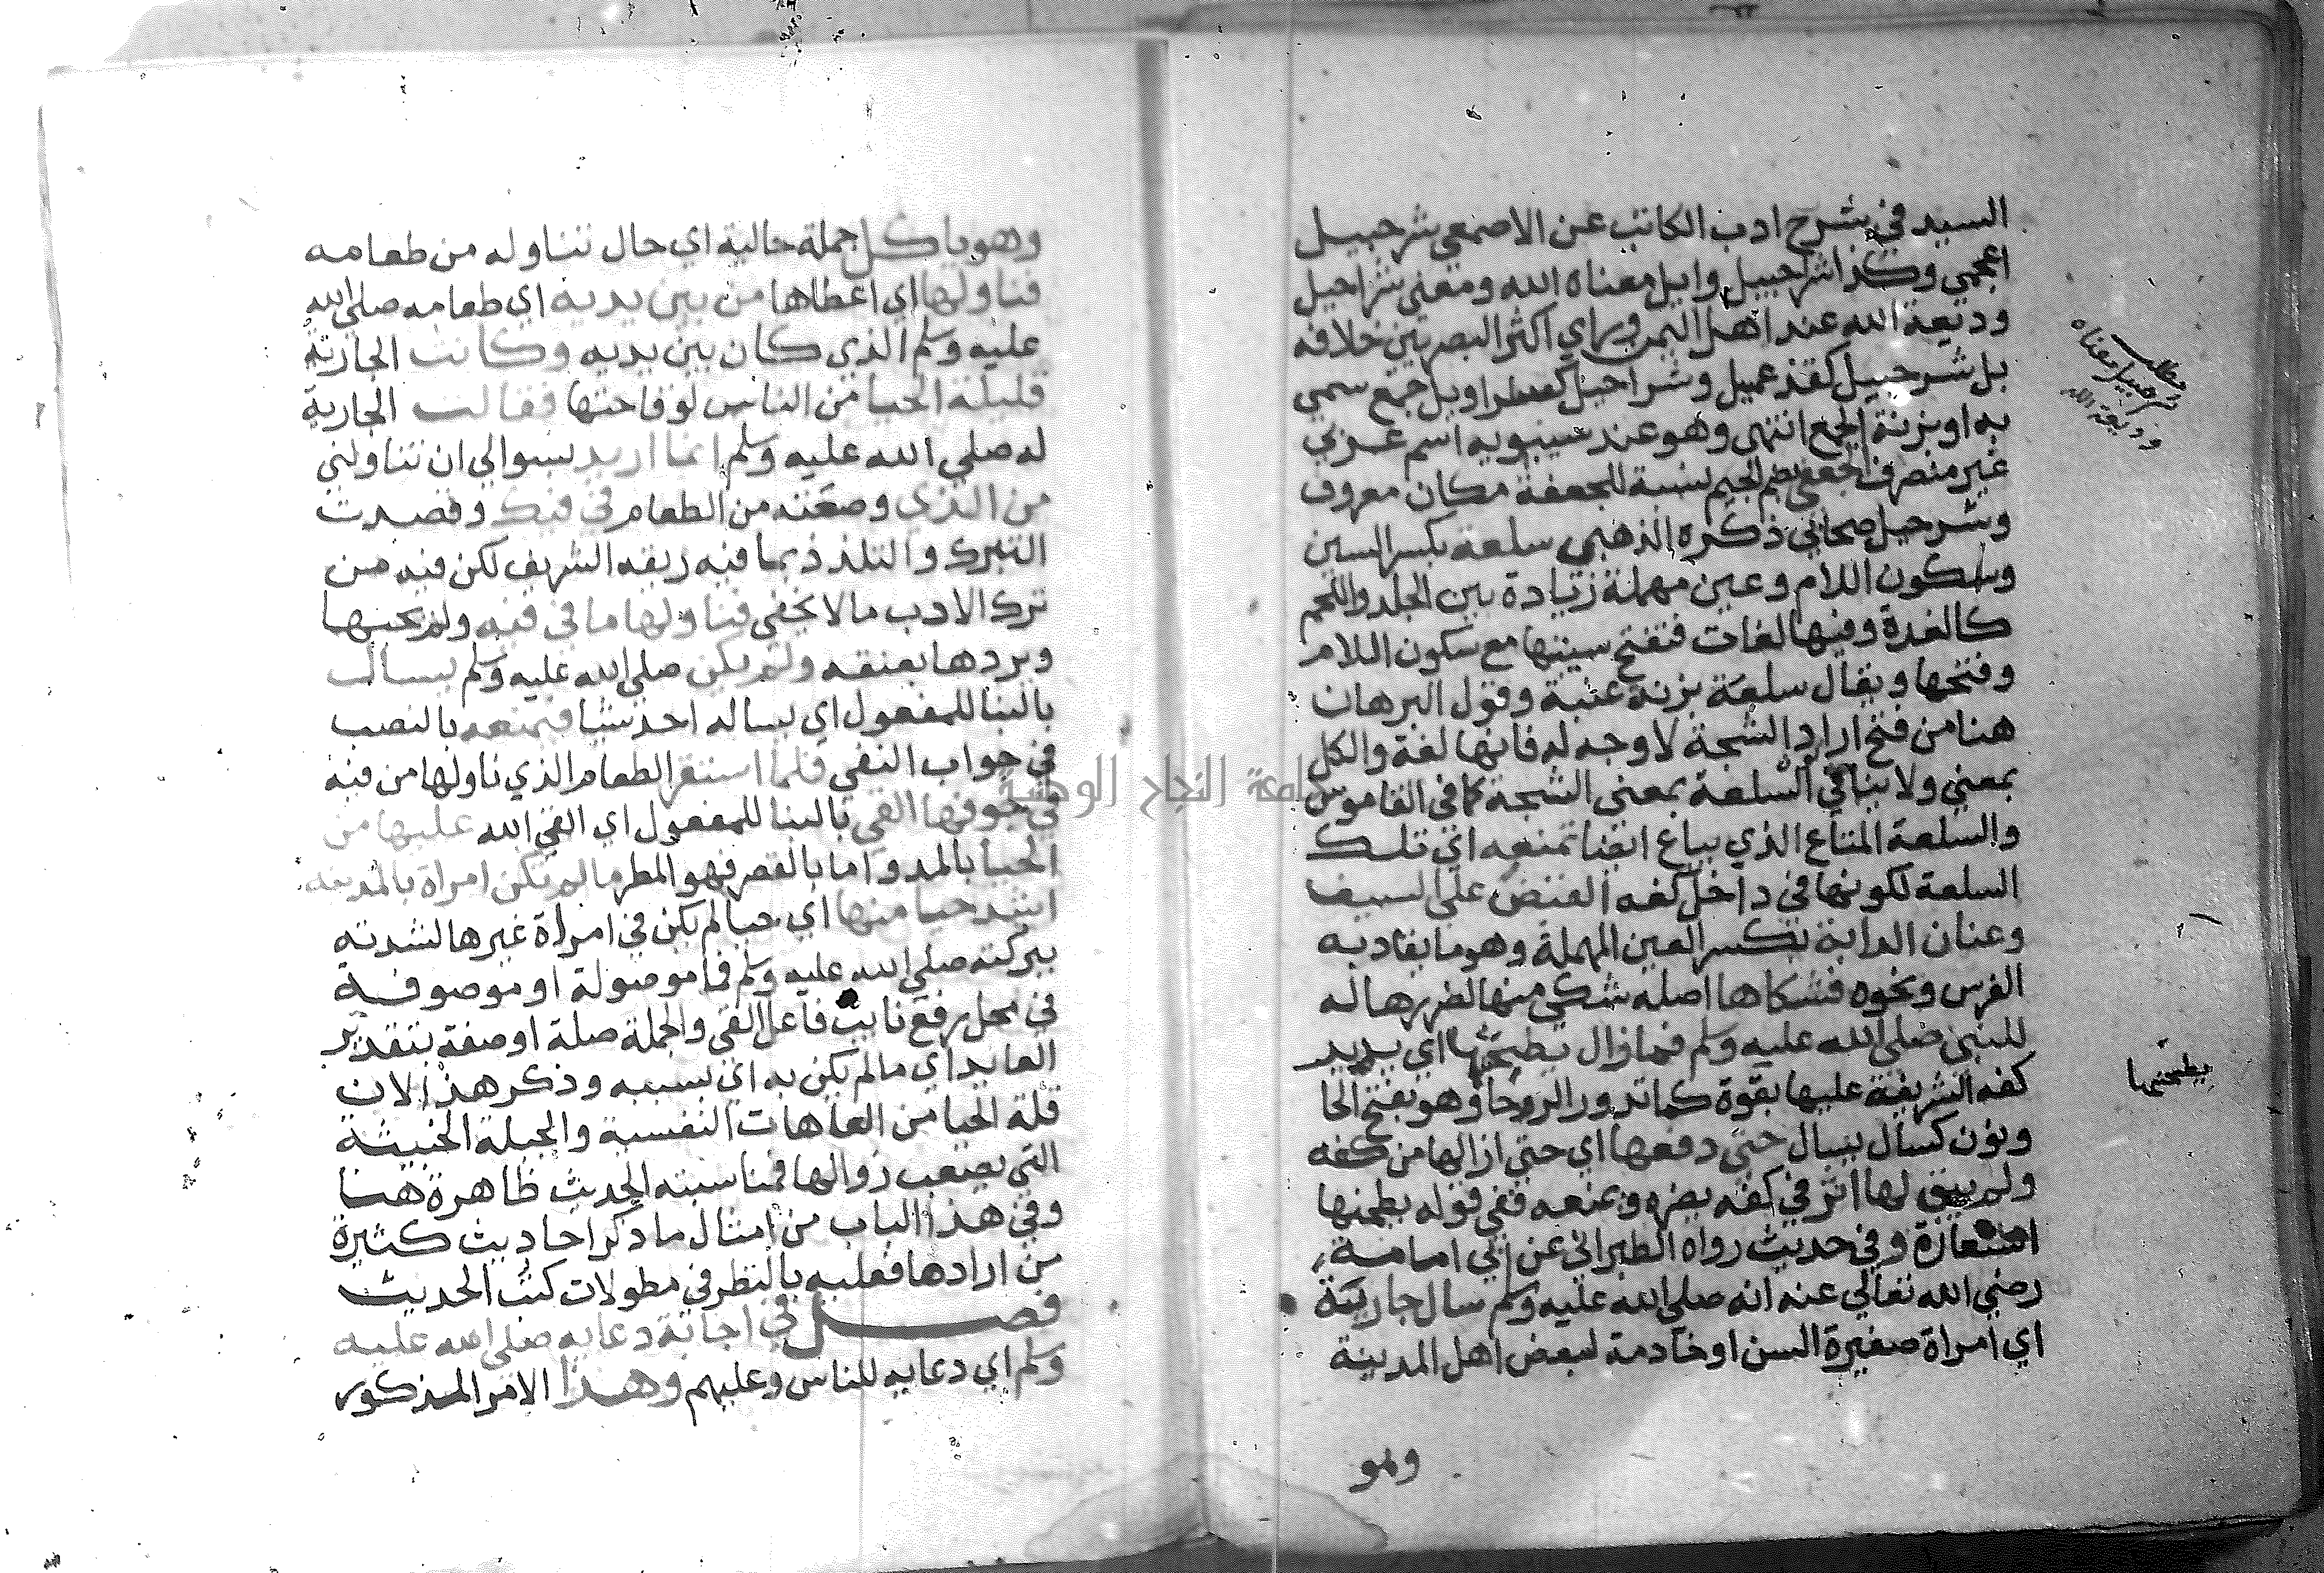 السيد في شرح ادب الكاتب عن الاصمعي شرحبيل
اعجمي وكذا شراحبيل وايل معناه الله ومعنى شراحيل
وديعة الله عند اهل اليمن وراي اكثر البصريين خلافه
بل شرحبيل كقذعميل وشراحيل كسراويل جمع سمي
به او بزنة الجمع انتهى وهو عند سيبويه اسم عربي
غير منصرف الجعفي بضم الجيم نسبة للجحفة مكان معروف
وشرحبيل صحابي ذكره الذهبي سلعة بكسر السين
وسكون اللام وعين مهملة زيادة بين الجلد واللحم
كالغدة وفيها لغات فتفتح سينها مع سكون اللام
وفتحها ويقال سلعة بزنة عنبة وقول البرهان
هنا من فتح اراد الشجة لا وجه له فانها لغة والكل
بمعني ولا ينافي السلعة بمعنى الشجة كما في القاموس
والسلعة المتاع الذي يباع ايضا تمنعه اي تلك
السلعة لكونها في داخل كفه القبض على السيف
وعنان الدابة بكسر العين المهملة وهو ما يقاد به
الفرس ونحوه فشكاها اصله شكى منها لضررها له
للنبي صلى الله عليه وسلم فما زال يطحنها اي يدير
كفه الشريفة عليها بقوة كما تدور الرحا وهو بفتح الحا
ونون كسال يسال حتى دفعها اي حتى ازالها من كفه
ولم يبق لها اثر في كفه يضره ويمنعه ففي قوله يطحنها
استعارة وفي حديث رواه الطبراني عن ابي امامة
رضي الله تعالي عنه انه صلي الله عليه وسلم سال جارية
اي امراة صغيرة السن او خادمة لبعض اهل المدينة
وهو
مطلب
شرحبيل معناه
وديعة الله
يطحنها
وهو ياكل جملة حالية اي حال تناوله من طعامه
فناولها اي اعطاها من بين يديه اي طعامه صلى الله
عليه وسلم الذي كان بين يديه وكانت الجارية
قليلة الحيا من الناس لوقاحتها فقالت الجارية
له صلي الله عليه وسلم انما اريد بسوالي ان تناولني
من الذي وضعته من الطعام في فيك وقصدت
التبرك والتلذذ بما فيه ريقه الشريف لكن فيه من
ترك الادب ما لا يخفى فناولها ما في فيه ولم يخيبها
ويردها بعنقه ولم يكن صلى الله عليه وسلم يسال
بالبنا للمفعول اي يساله احد شيا فيمنعه بالنصب
في جواب النفي فلما استقر الطعام الذي ناولها من فيه
في جوفها القي بالبنا للمفعول اي القي الله عليها من
الحيا بالمد واما بالقصر فهو المطر ما لم تكن امراة بالمدينة
اشد حيا منها اي حيا لم يكن في امراة غيرها لشدته
ببركته صلى الله عليه وسلم فما موصولة او موصوفة
في محل رفع نايب فاعل القي والجملة صلة او صفة بتقدير
العايد اي ما لم يكن به اي بسببه وذكر هذا لان
قلة الحيا من العاهات النفسية والجبلة الخبيثة
التي يصعب زوالها فمناسبته للحديث ظاهرة هنا
وفي هذا الباب من امثال ما ذكر احاديث كثيرة
من ارادها فعليه بالنظر في مطولات كتب الحديث
فصل في اجابة دعايه صلى الله عليه
وسلم اي دعايه للناس وعليهم وهذا الامر المذكور
جامعة النجاح الوطنية